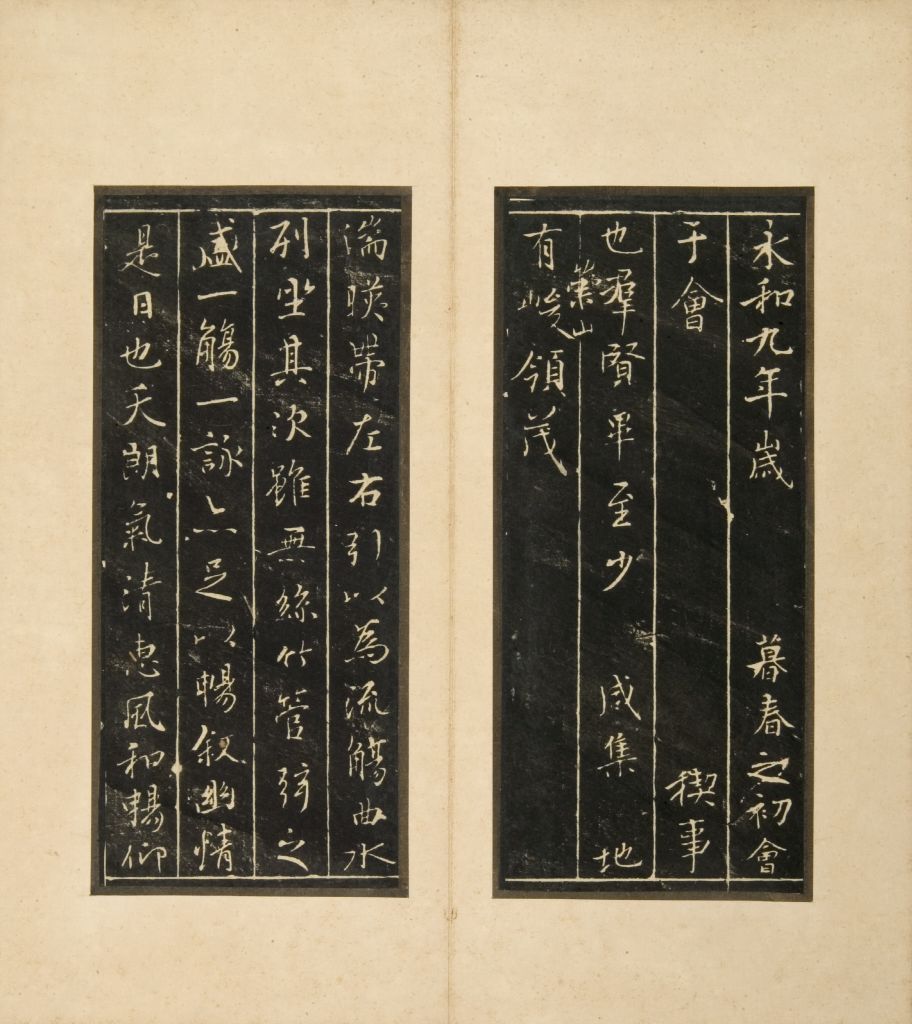 永和九年歲暮春之初會
于會稧事
也羣賢畢至少咸集地
有崇山峻領茂
湍暎帶左右引以為流觴曲水
列坐其次雖無絲竹管弦之
盛一觴一詠亦足以暢叙幽情
是日也天朗氣清惠風和暢仰